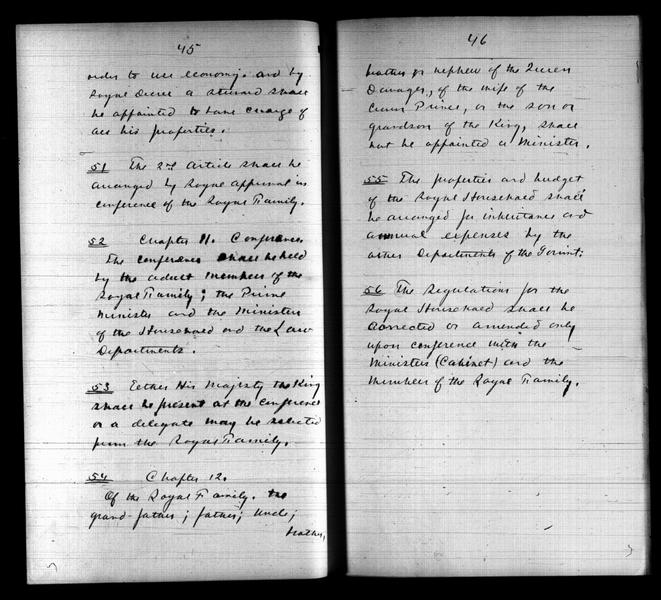 45
order to use economy. and by
Royal Decree a steward shall
be appointed to have charge of
all his properties.
51 The 2nd Article shall be
arranged by Royal approval in
conference of the Royal Family.
52 Chapter 11. Conference
The conference shall be held
by the adult members of the
Royal Family; the Prime
Minister and the Ministers
of the Household and the Law
Departments.
53 Either His Majesty the King
shall be present at the conference
or a delegate may be selected
from the Royal Family.
54 Chapter 12.
Of the Royal Family. the
grand-father; father; uncle;
brother,
46
brother or nephew of the Queen
Dowager, of the wife of the
Crown Prince, or the son or
grandson of the King, shall
not be appointed a Minister.
55 The properties and budget
of the Royal Household shall
be arranged for inheritance and
annual expenses by the
other Departments of the Govint:
56 The Regulations for the
Royal Household shall be
corrected or amended only
upon conference with the
Ministers (Cabinet) and the
Members of the Royal Family.